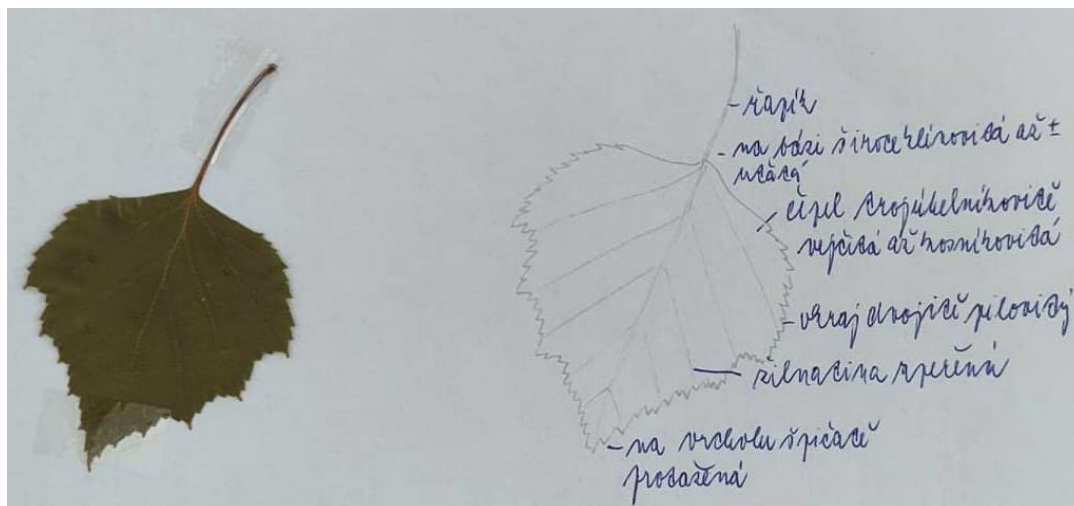 - řapík
- na bázi široce klínovitá až ±
uťatá
čepel trojúhelníkovitě
vejčitá až kosníkovitá
- okraj dvojitě pilovitý
žilnatina zpeřená
- na vrcholu špičatě
protažená